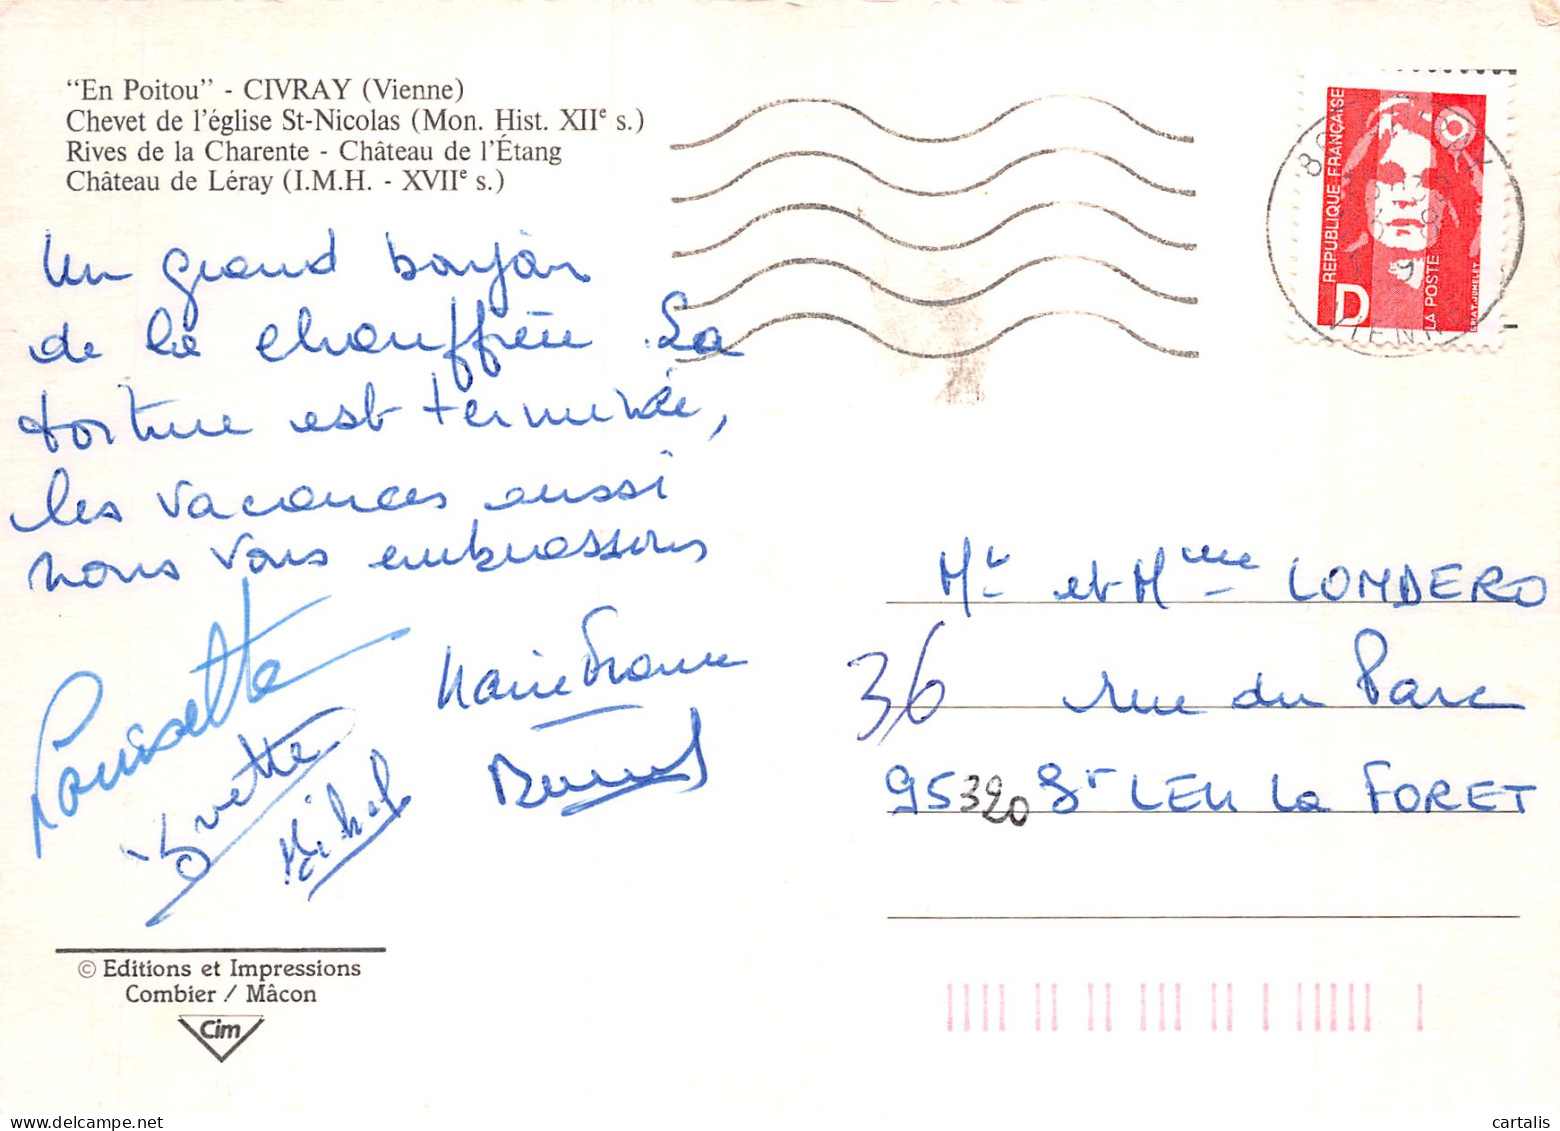 "En Poitou" - CIVRAY (Vienne)
Chevet de l'église St-Nicolas (Mon. Hist. XIIe s.)
Rives de la Charente - Château de l'Étang
Château de Léray (I.M.H. - XVIIe s.)
Un grand bonjour
de la chauffrée La
torture est terminée,
les vacances aussi
nous vous embrassons
Louisette
Yvette
Michel
Marie France
REPUBLIQUE FRANÇAISE
D
LA POSTE
VIENNE
Mr et Mme LOMDERO
36 rue du Parc
95320 St LEU La FORET
© Editions et Impressions
Combier / Mâcon
Cim
cartalis